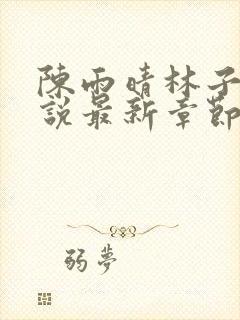 陳雨晴林子
說最新章節
弱夢